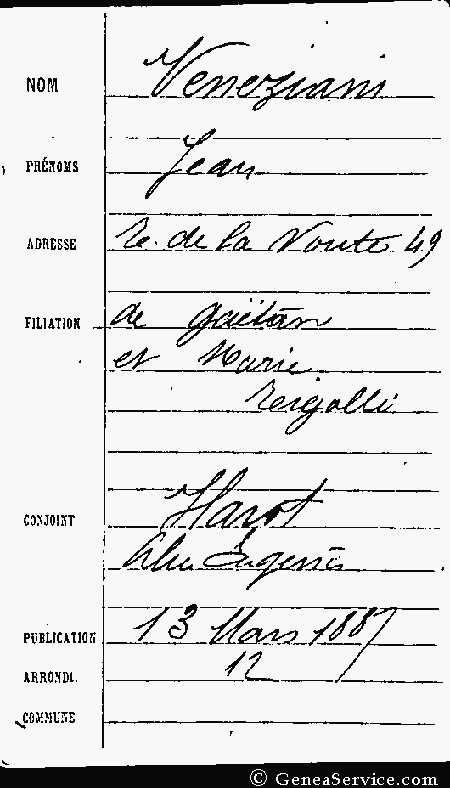 NOM Veneziani
PRÉNOMS Jean
ADRESSE R. de la Voute 49
FILIATION de Gaëtan
et Marie
CONJOINT Harot
Eugénie
PUBLICATION 13 Mars 1887
ARRONDt. 12
COMMUNE
© GeneaService.com